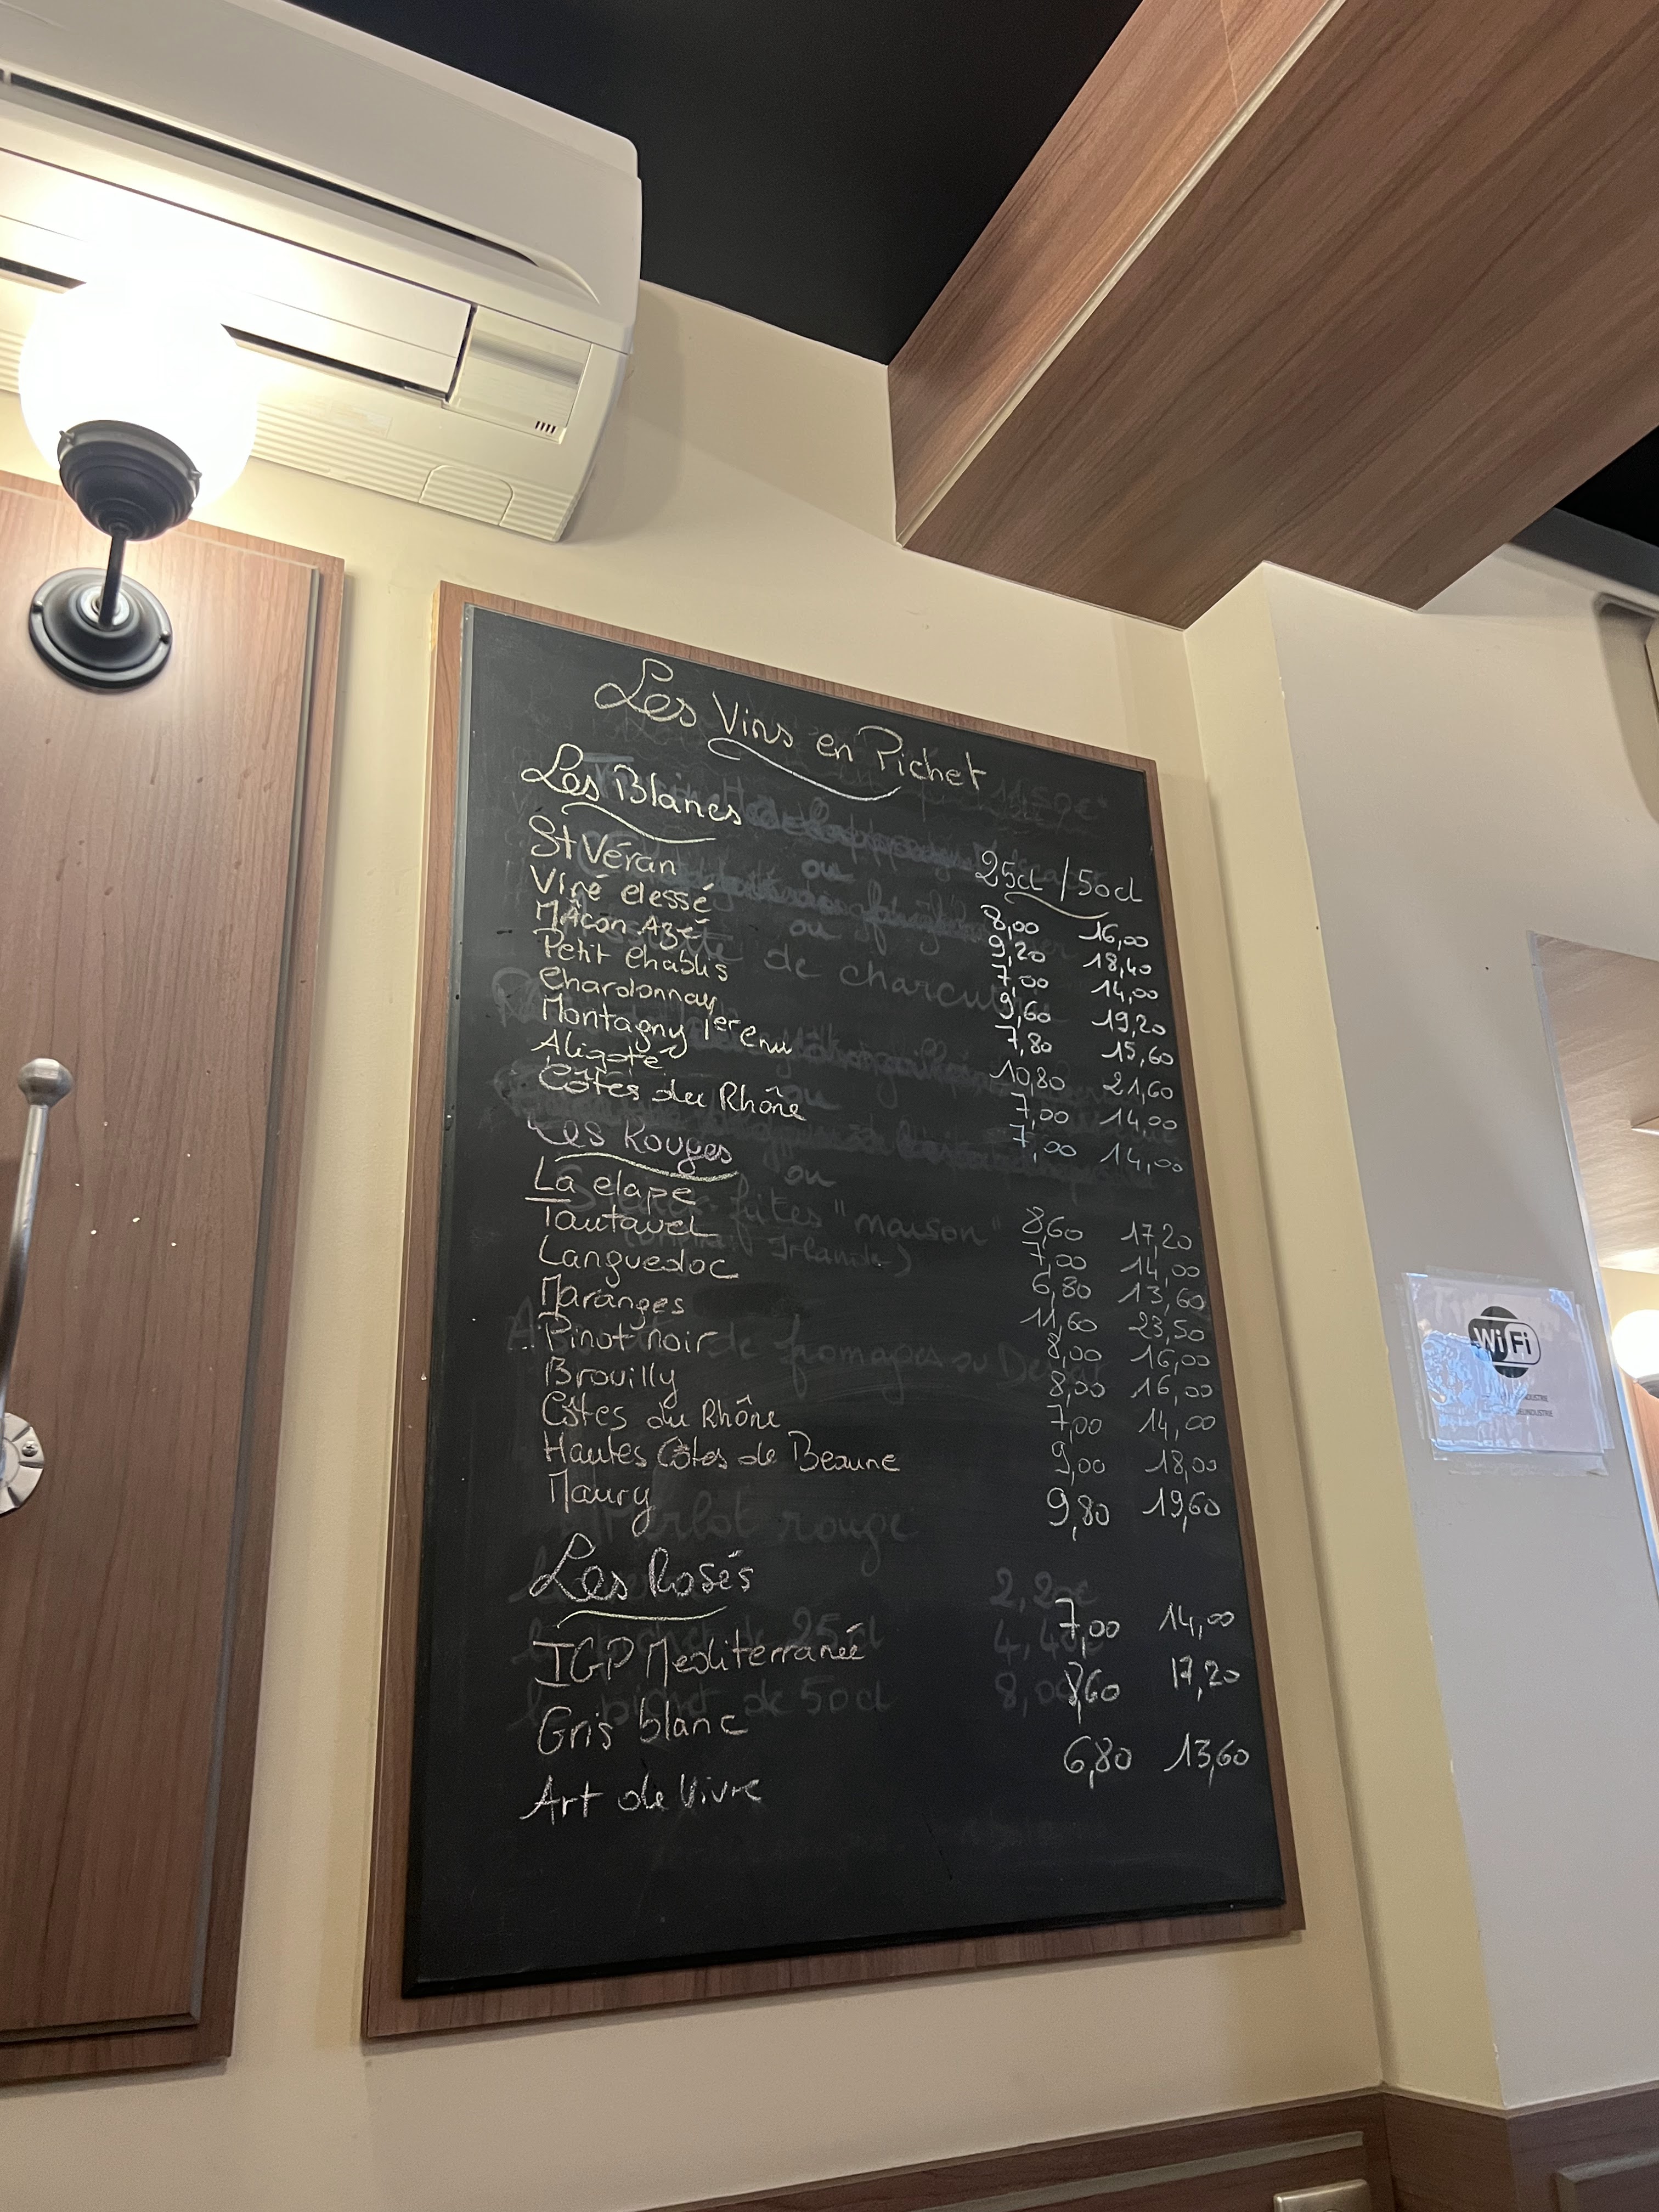 Les Vins en Pichet
Les Blancs
25cl / 50cl
St Véran 8,00 16,00
Viré Clessé 9,20 18,40
Mâcon Azé 7,00 14,00
Petit Chablis 9,60 19,20
Chardonnay 7,80 15,60
Montagny 1er Cru 10,80 21,60
Aligoté 7,00 14,00
Côtes du Rhône 7,00 14,00
Les Rouges
La Clape 8,60 17,20
Tautavel 7,00 14,00
Languedoc 6,80 13,60
Maranges 11,60 23,50
Pinot noir 8,00 16,00
Brouilly 8,00 16,00
Côtes du Rhône 7,00 14,00
Hautes Côtes de Beaune 9,00 18,00
Maury 9,80 19,60
Les Rosés
IGP Mediterranée 7,00 14,00
Gris blanc 8,60 17,20
Art de Vivre 6,80 13,60
WiFi